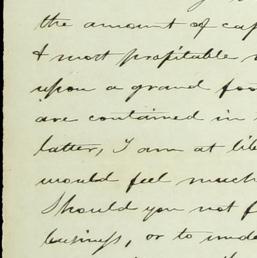 the amount of cap
& most profitable
upon a grand
are contained in
latter, I am at lib
would feel much
Should you not f
business, or to unde